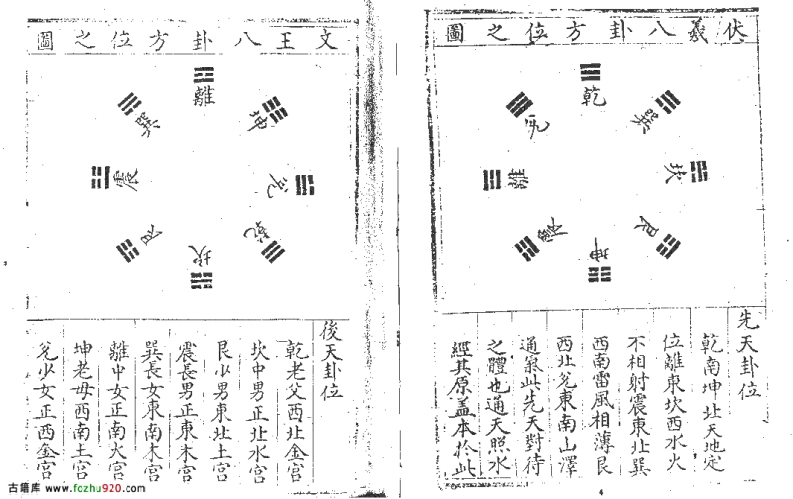 伏羲八卦方位之圖
乾
兌
巽
離
坎
震
艮
坤
先天卦位
乾南坤北天地定
位離東坎西水火
不相射震東北巽
西南雷風相薄艮
西北兌東南山澤
通氣此先天對待
之體也通天照水
經其原蓋本於此
文王八卦方位之圖
離
巽
坤
震
兌
艮
乾
坎
後天卦位
乾老父西北金宮
坎中男正北水宮
艮少男東北土宮
震長男正東木宮
巽長女東南木宮
離中女正南火宮
坤老母西南土宮
兌少女正西金宮
古籍库 www.fozhu920.com